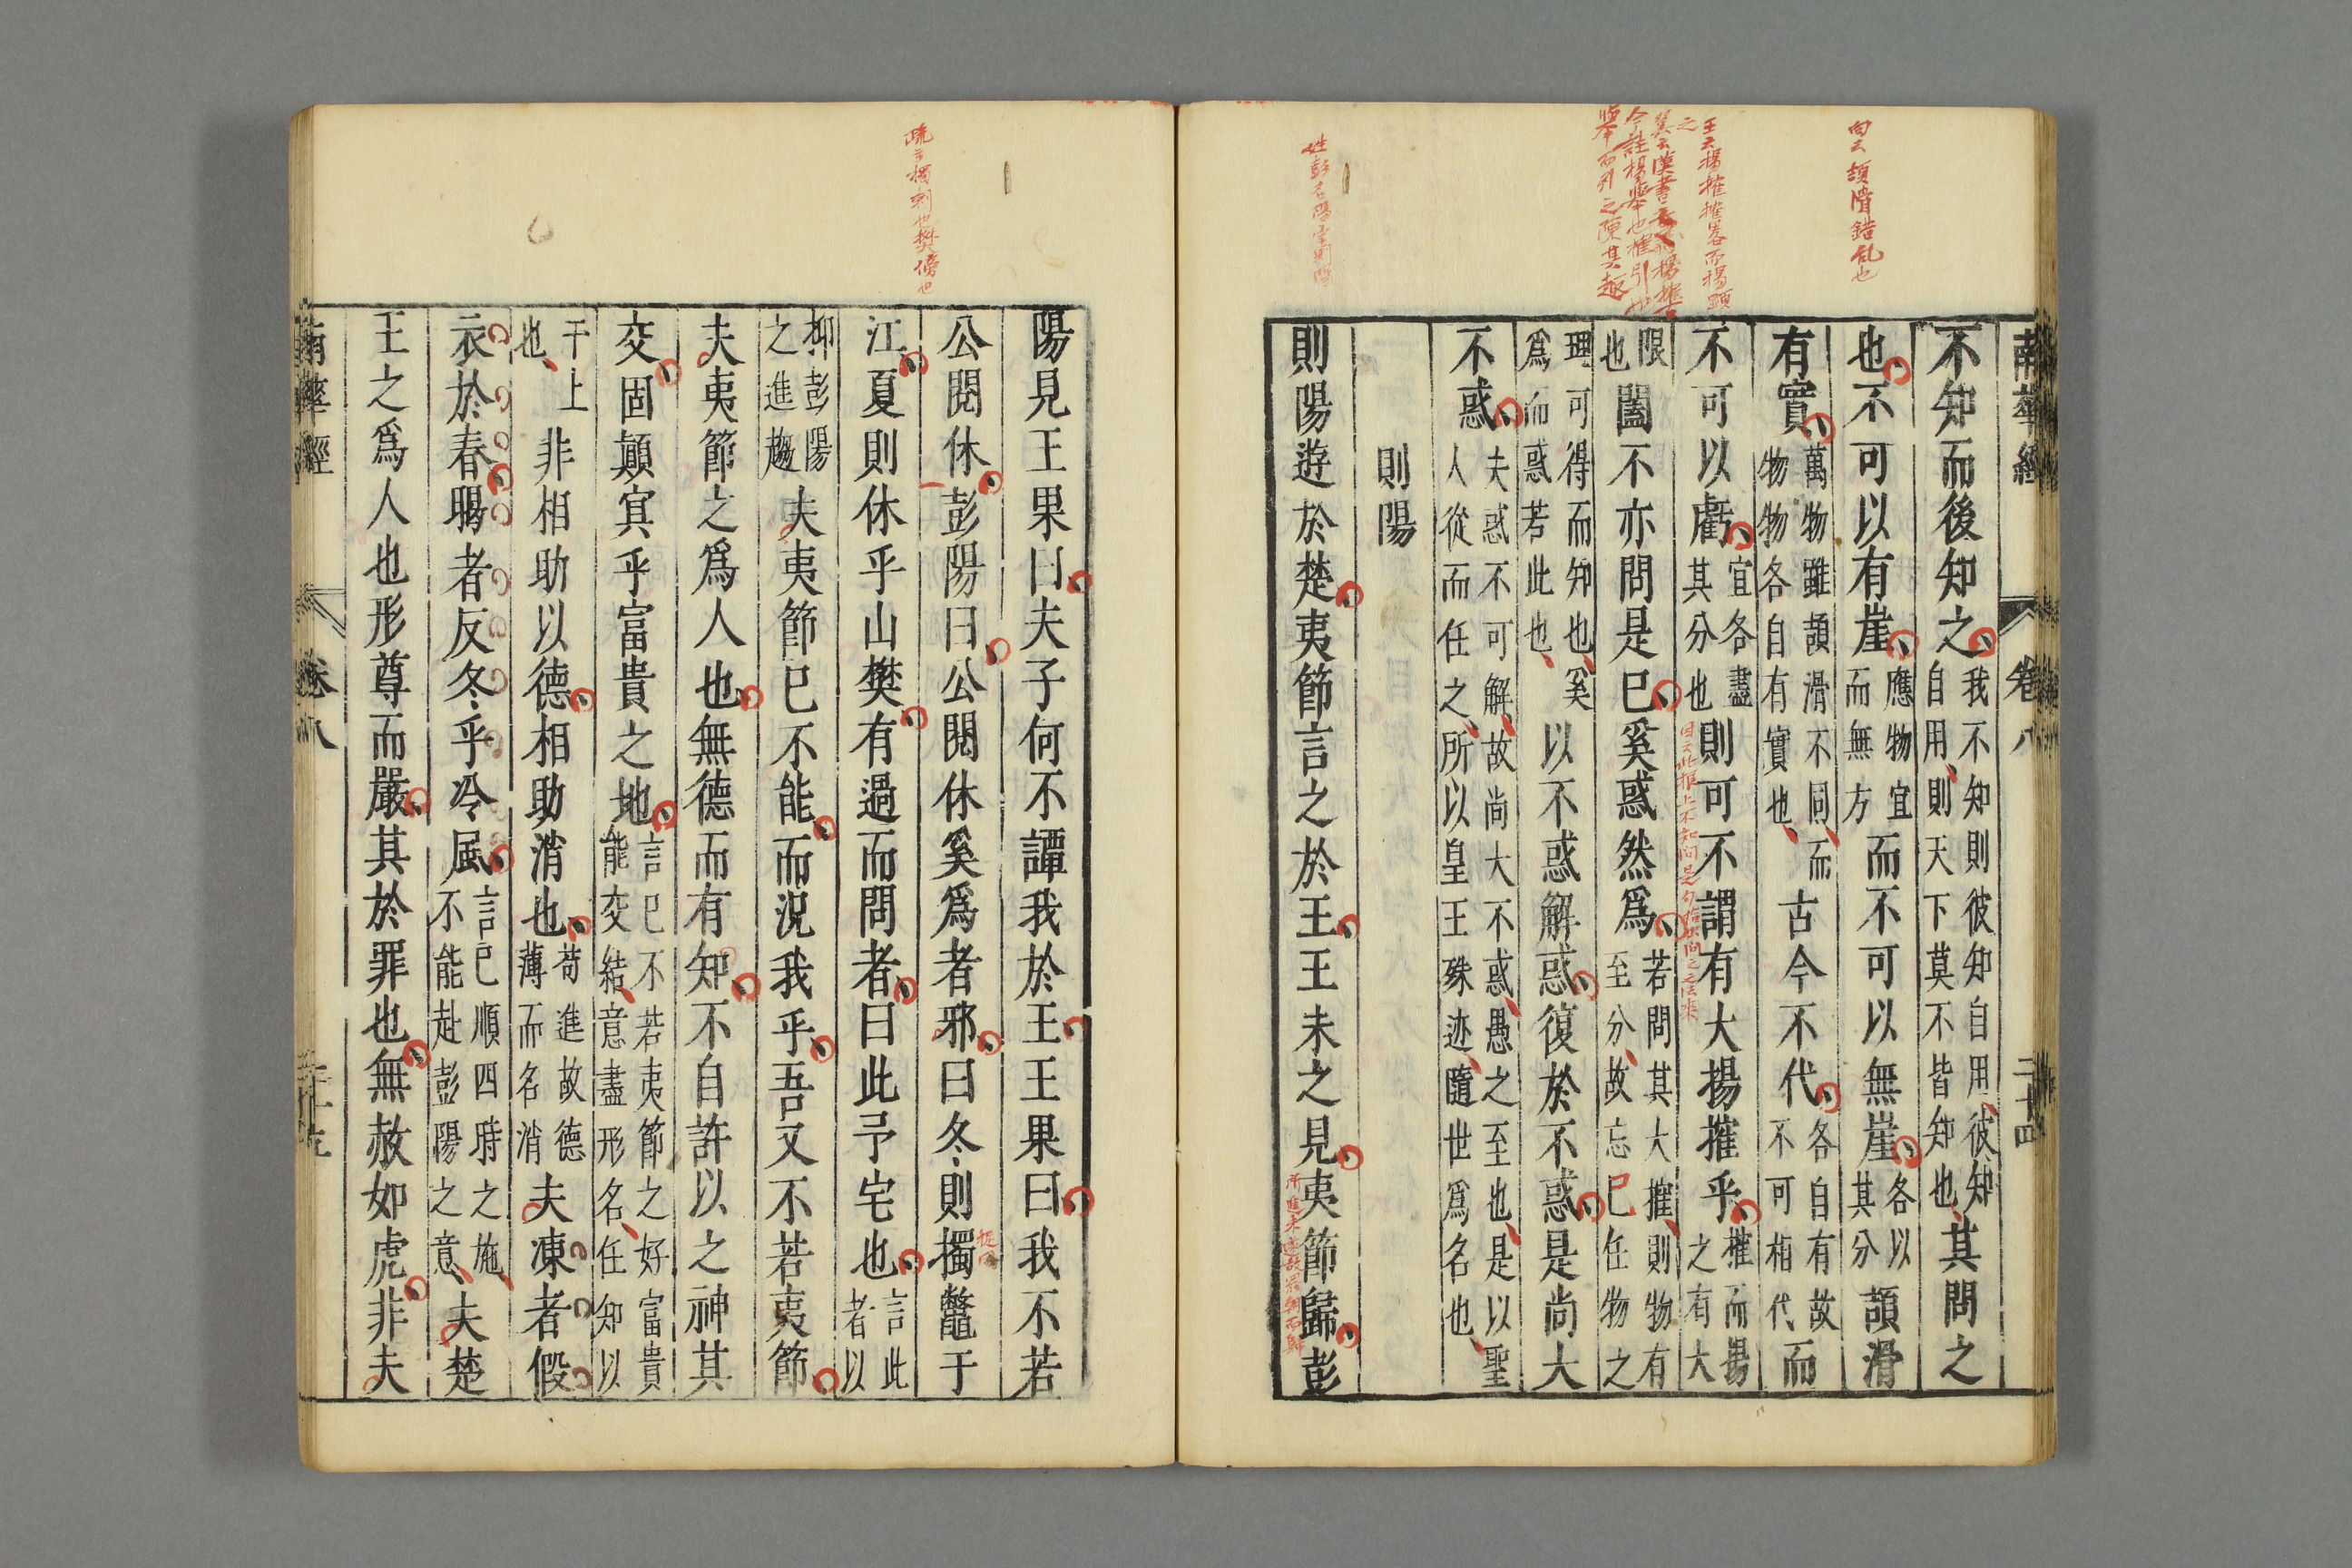 向云頡滑錯乱也
王云揚搉搉畧而揚顕之
今註揚舉也搉引也
舉而引之陳其趣
姓彭名陽字則陽
南華經 卷八 二十四
不知而後知之我不知則彼知自用彼知自用則天下莫不皆知也其問之
也不可以有崖應物宜而無方而不可以無崖各以其分頡滑
有實萬物雖頡滑不同而物物各自有實也古今不代各自有故不可相代而
不可以虧宜各盡其分也則可不謂有大揚搉乎搉而揚之有大
限也闔不亦問是已奚惑然爲若問其大搉則物有至分故忘已任物之
理可得而知也奚爲而惑若此也以不惑解惑復於不惑是尚大
不惑夫惑不可解故尚大不惑愚之至也是以聖人從而任之所以皇王殊迹隨世爲名也
則陽
則陽遊於楚夷節言之於王王未之見夷節歸彭
疏云擉刺也樊傍也
陽見王果曰夫子何不譚我於王王果曰我不若
公閱休彭陽曰公閱休奚爲者邪曰冬則擉鼈于
江夏則休乎山樊有過而問者曰此予宅也言此者以
抑彭陽之進趨夫夷節已不能而況我乎吾又不若夷節
夫夷節之爲人也無德而有知不自許以之神其
交固顛冥乎富貴之地言已不若夷節之好富貴能交結意盡形名任知以
干上也非相助以德相助消也苟進故德薄而名消夫凍者假
衣於春暍者反冬乎冷風言已順四時之施不能赴彭陽之意夫楚
王之爲人也形尊而嚴其於罪也無赦如虎非夫
南華經 卷八 二十五